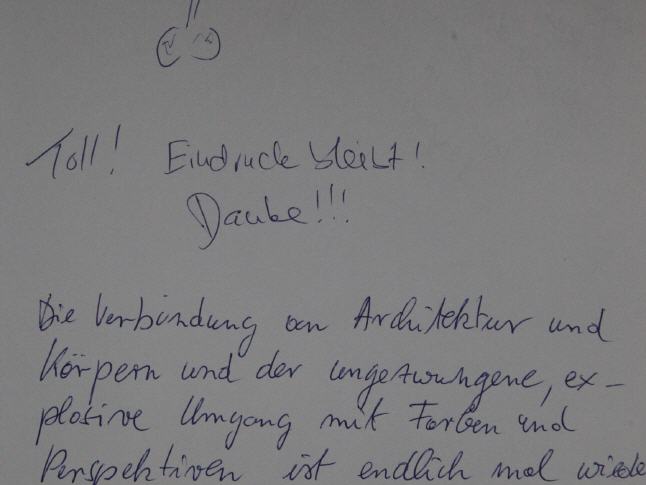 Toll! Eindruck bleibt!
Danke!!!
Die Verbindung von Architektur und
Körpern und der ungezwungene, ex-
plosive Umgang mit Farben und
Perspektiven ist endlich mal wiede